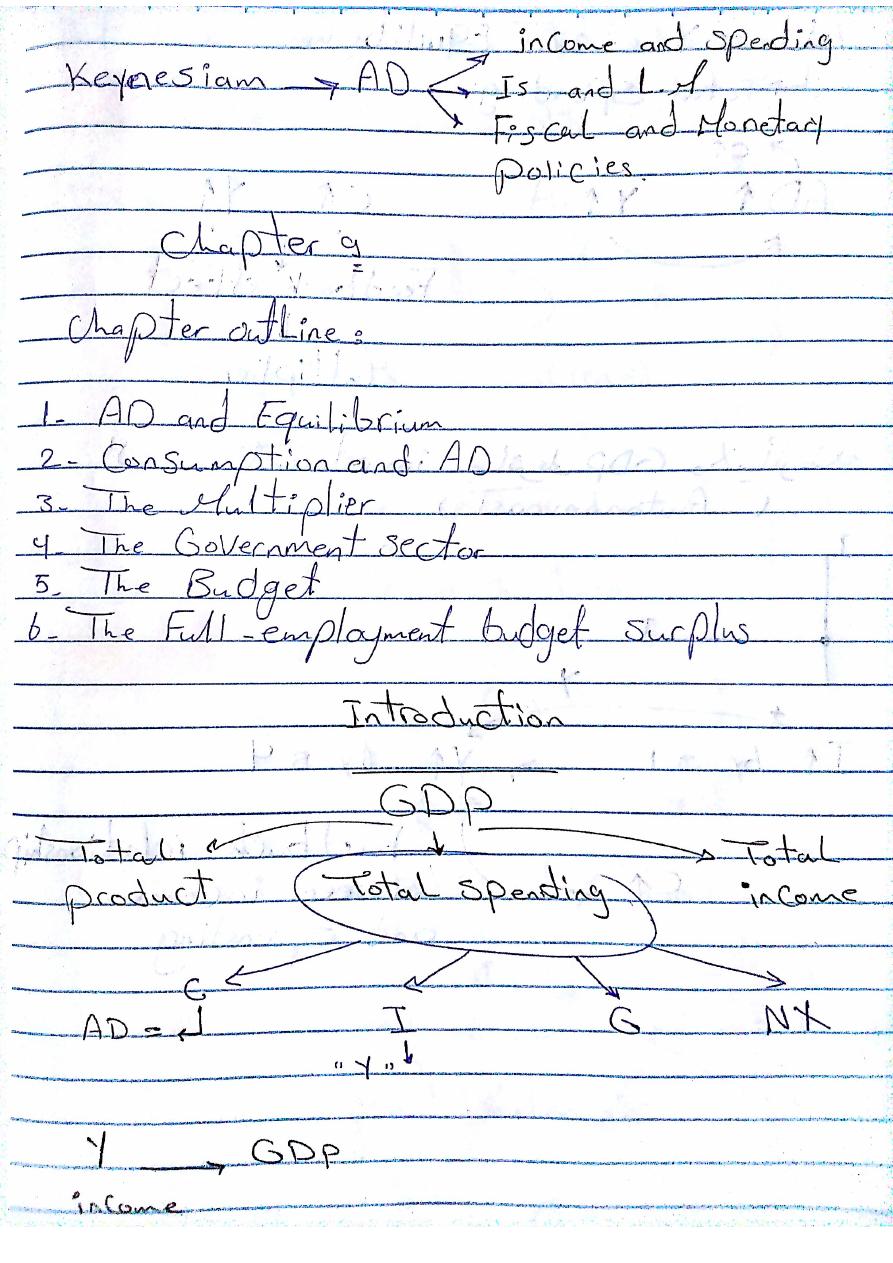 income and spending
Keynesiam → AD → Is and LM
Fiscal and Monetary
policies.
Chapter 9
Chapter outline:
1- AD and Equilibrium
2- Consumption and AD
3- The Multiplier
4- The Government sector
5- The Budget
6- The Full-employment budget surplus
Introduction
GDP
Total product
Total spending
Total income
C
I
G
NX
AD =
"Y"
Y → GDP
income